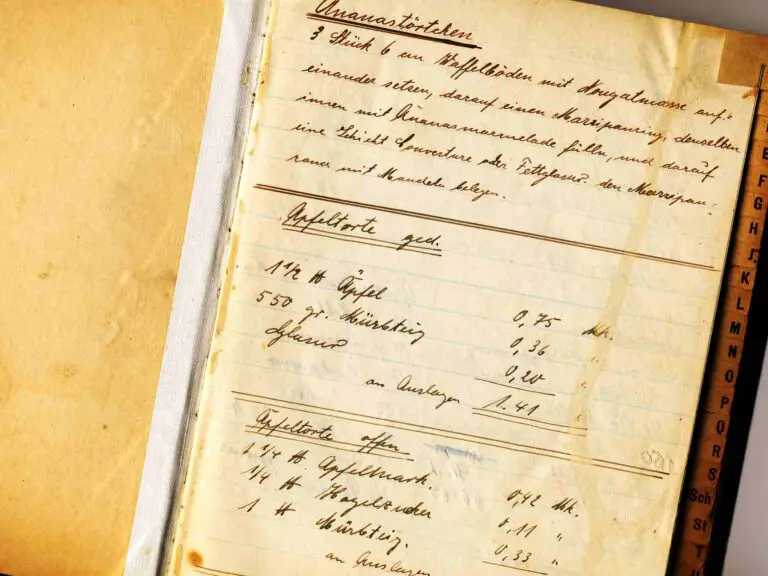 Ananastörtchen
3 Stück 6 cm Waffelböden mit Nougatmasse auf=
einander setzen, darauf einen Marzipanring, denselben
innen mit Ananasmarmelade füllen, und darauf
eine Schicht Couverture oder Fettglasur. den Marzipan-
rand mit Mandeln belegen.
Apfeltorte ged.
1 1/2 ℔ Äpfel 0,75 Mk.
550 gr. Mürbteig 0,36 "
Glasur 0,20 "
an Auslagen 1.41 "
Apfeltorte offen
1 1/4 ℔ Apfelmark. 0,42 Mk.
1/4 ℔ Hagelzucker 0,11 "
1 ℔ Mürbteig. 0,33 "
an Auslagen
160
E
F
G
H
J
K
L
M
N
O
P
Q
R
S
Sch
St
T
U